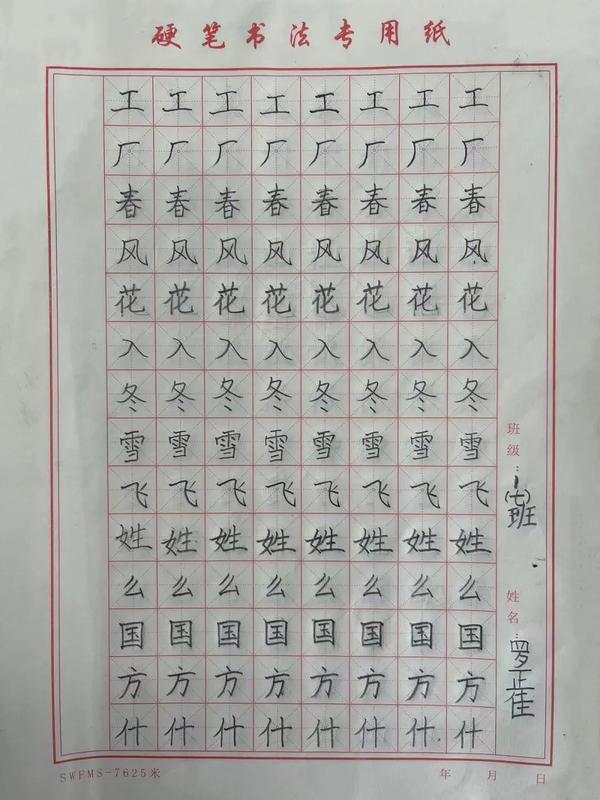 硬笔书法专用纸
工工工工工工工工
厂厂厂厂厂厂厂厂
春春春春春春春春
风风风风风风风风
花花花花花花花花
入入入入入入入入
冬冬冬冬冬冬冬冬
雪雪雪雪雪雪雪雪
飞飞飞飞飞飞飞飞
姓姓姓姓姓姓姓姓
么么么么么么么么
国国国国国国国国
方方方方方方方方
什什什什什什什什
班级:1(七)班
姓名:罗正佳
SWFMS-7625米
年 月 日